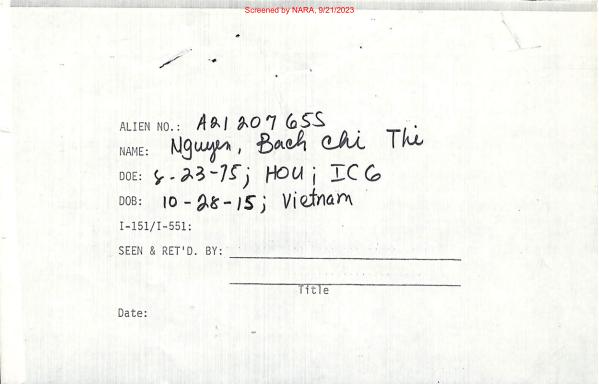 Screened by NARA, 9/21/2023
ALIEN NO.: A21 207 655
NAME: Nguyen, Bach Chi Thi
DOE: 8-23-75; HOU; IC6
DOB: 10-28-15; Vietnam
I-151/I-551:
SEEN & RET'D. BY:
Title
Date: